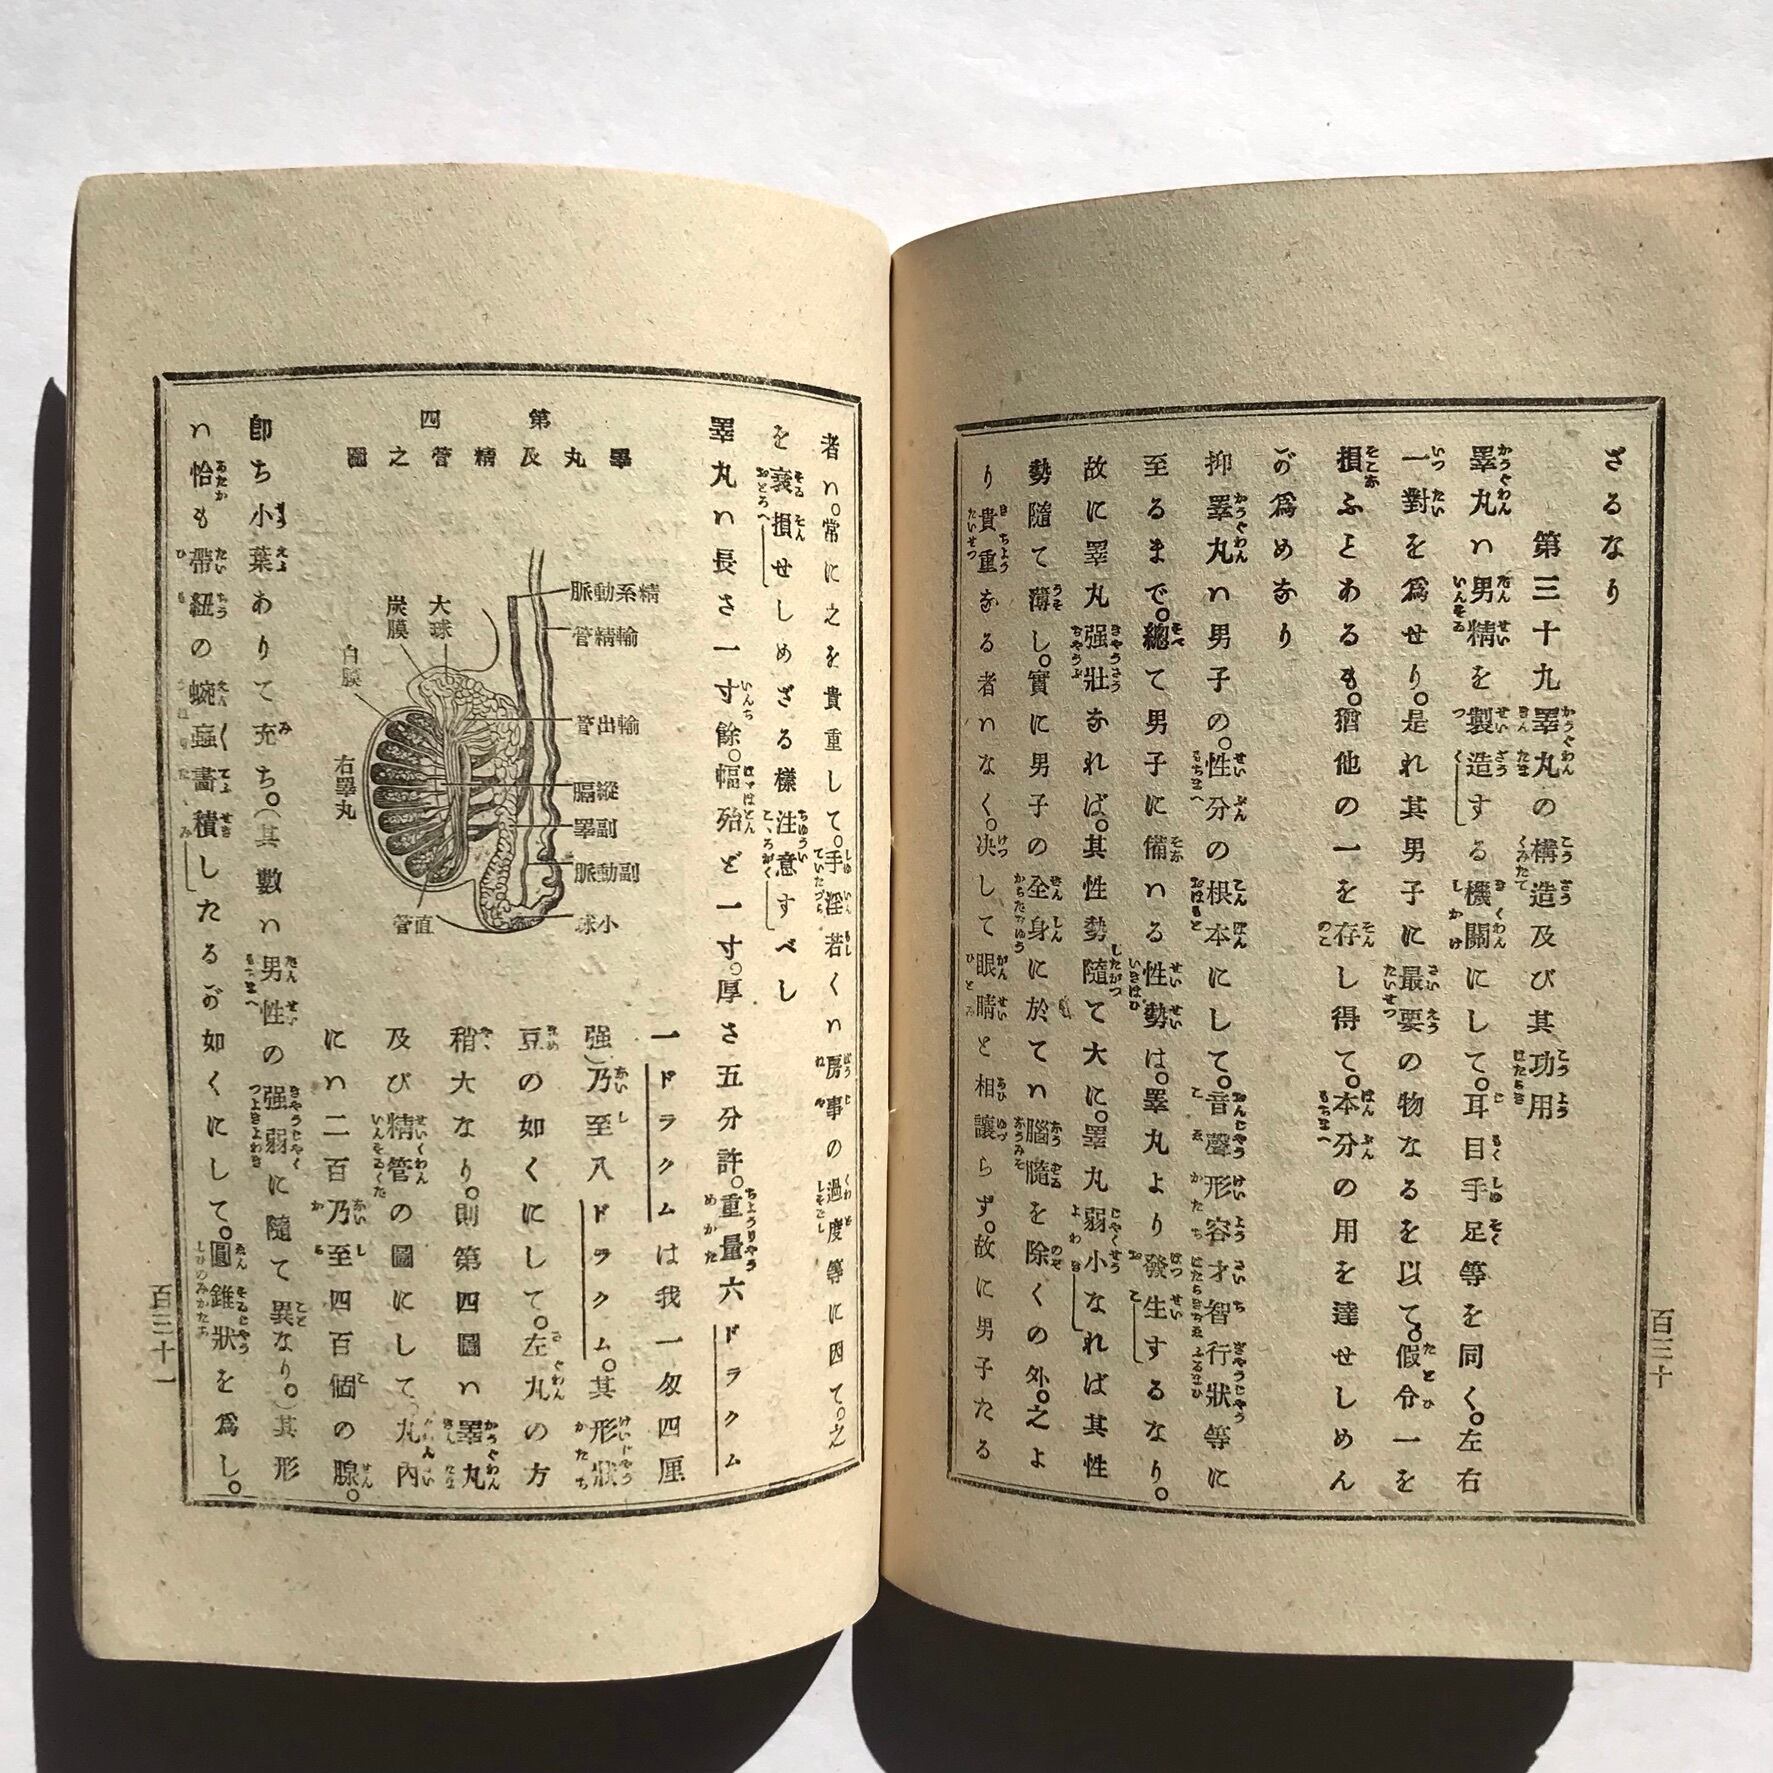 ざるなり
第三十九睪丸の構造及び其功用
睪丸ハ男精を製造する機關にして。耳目手足等を同く。左右
一對を爲せり。是れ其男子に最要の物なるを以て。假令一を
損ふとあるも。猶他の一を存し得て。本分の用を達せしめん
が爲めなり
抑睪丸ハ男子の。性分の根本にして。音聲形容才智行狀等に
至るまで。總て男子に備ハる性勢は。睪丸より發生するなり。
故に睪丸强壯なれば。其性勢隨て大に。睪丸弱小なれば其性
勢隨て薄し。實に男子の全身に於てハ腦膸を除くの外。之よ
り貴重なる者ハなく。决して眼睛と相讓らず。故に男子たる
百三十
者ハ。常に之を貴重して。手淫若くハ房事の過度等に因て。之
を衰損せしめざる樣注意すべし
睪丸ハ長さ一寸餘。幅殆ど一寸。厚さ五分許。重量六ドラクム
一ドラクムは我一匁四厘
强)乃至八ドラクム。其形狀
豆の如くにして。左丸の方
稍大なり。則第四圖ハ睪丸
及び精管の圖にして。丸內
にハ二百乃至四百個の腺。
第四
睪丸及精管之圖
精系動脈
輸精管
輸出管
縱膈
副睪
副動脈
小球
大球
炭膜
白膜
右睪丸
直管
卽ち小葉ありて充ち。(其數ハ男性の强弱に隨て異なり。)其形
ハ恰も帶紐の蜿蝹畵積したるが如くにして。圓錐狀を爲し。
百三十一